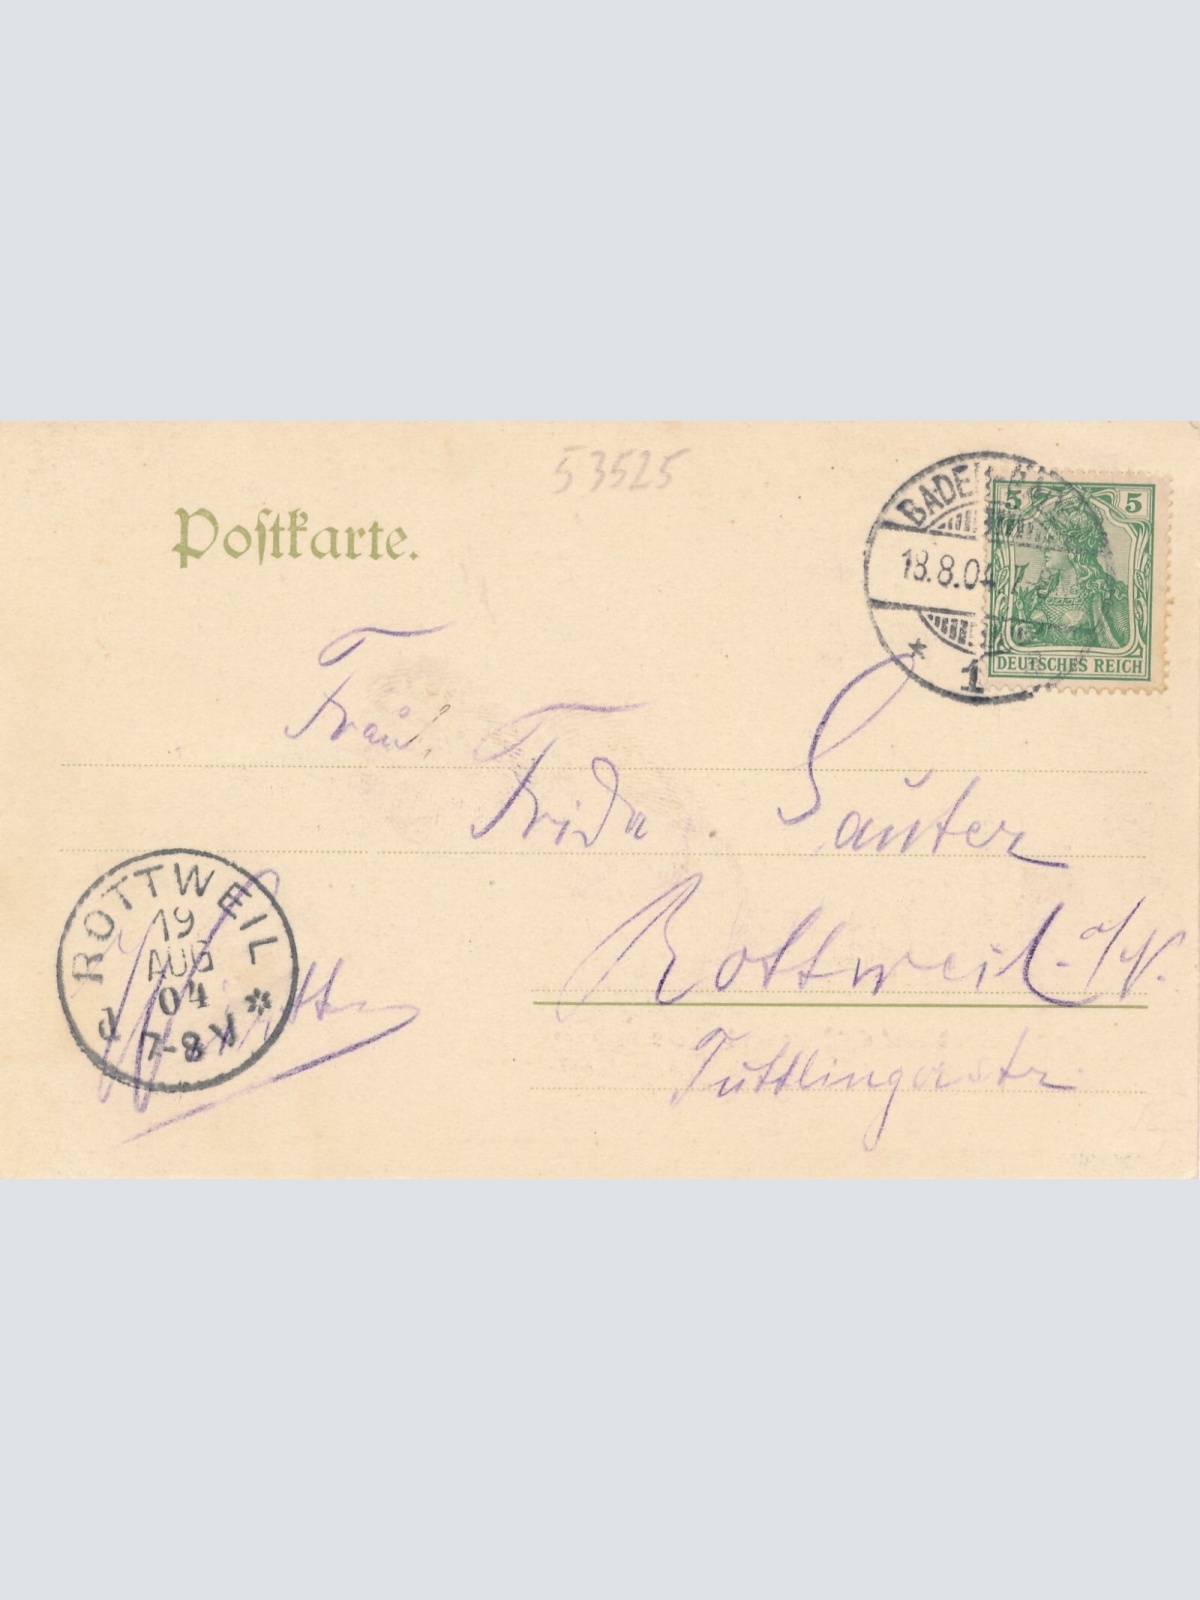 53525
Postkarte.
BADEN-BA
18.8.04 7
* 1
5 5
DEUTSCHES REICH
Fräul. Frida Sauter
Rottweil a/N.
Tuttlingerstr
ROTTWEIL
19
AUG
04